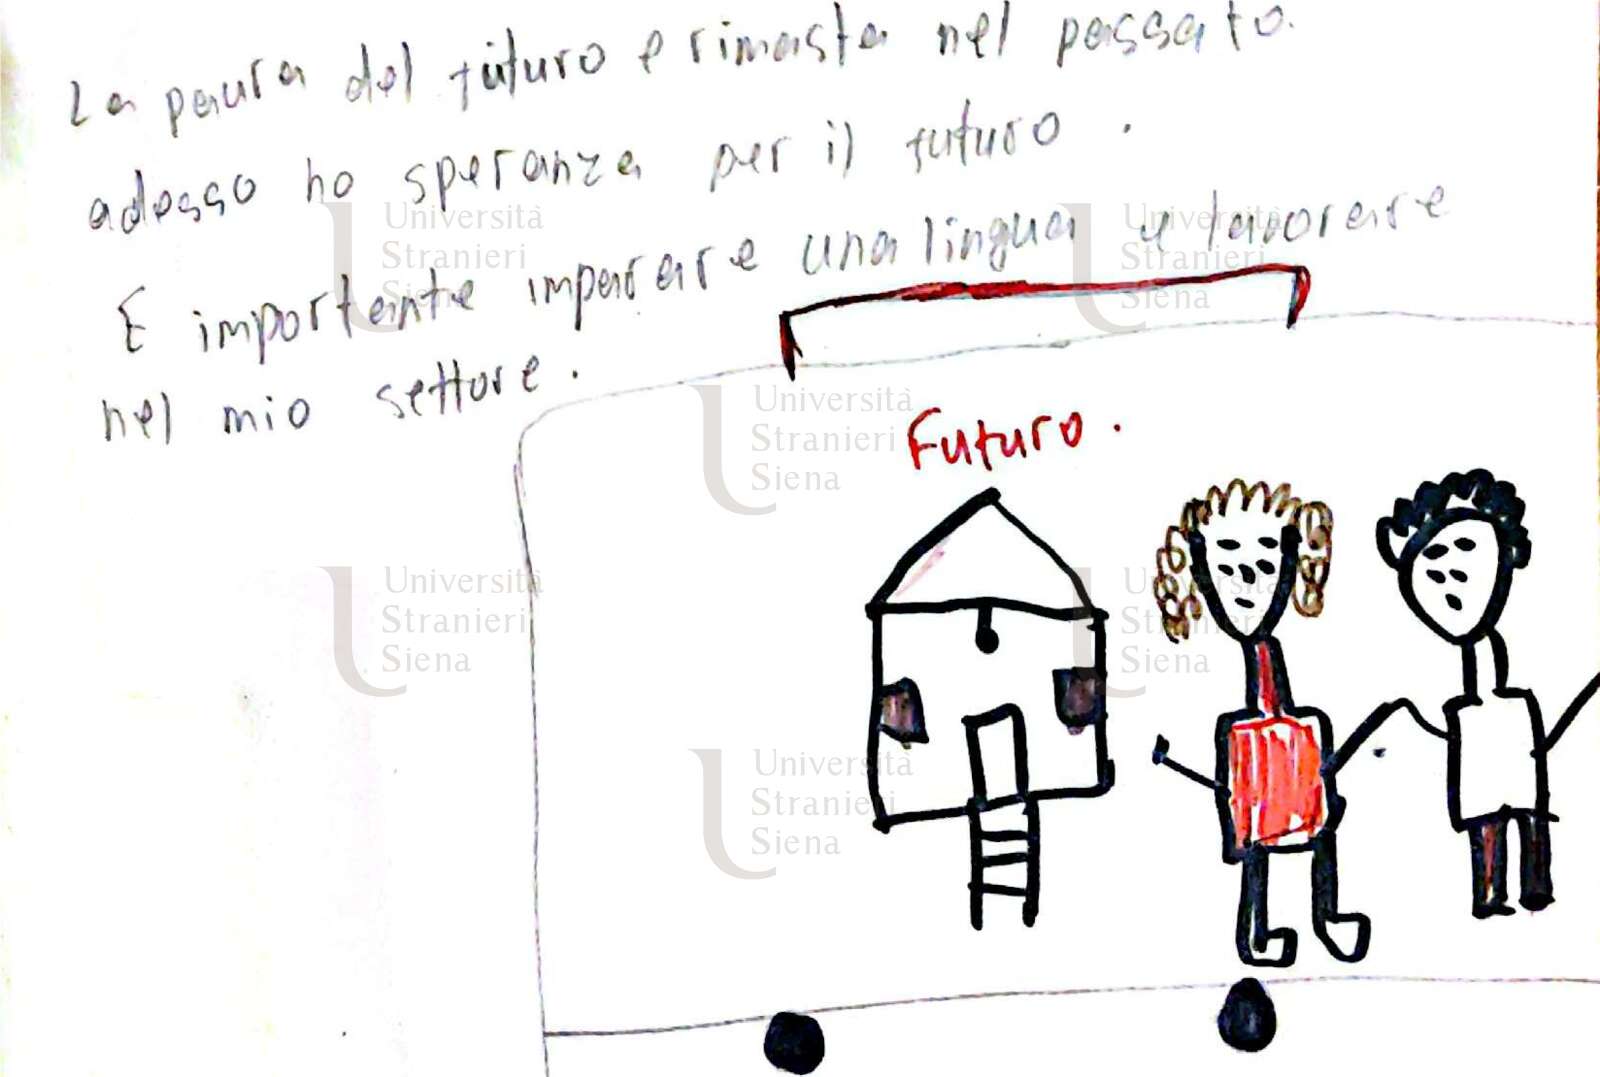 La paura del futuro e rimasta nel passato.
adesso ho speranza per il futuro.
E importante imparare una lingua e lavorare
nel mio settore.
Futuro.
Università
Stranieri
Siena
Università
Stranieri
Siena
Università
Stranieri
Siena
Università
Stranieri
Siena
Università
Stranieri
Siena
Università
Stranieri
Siena